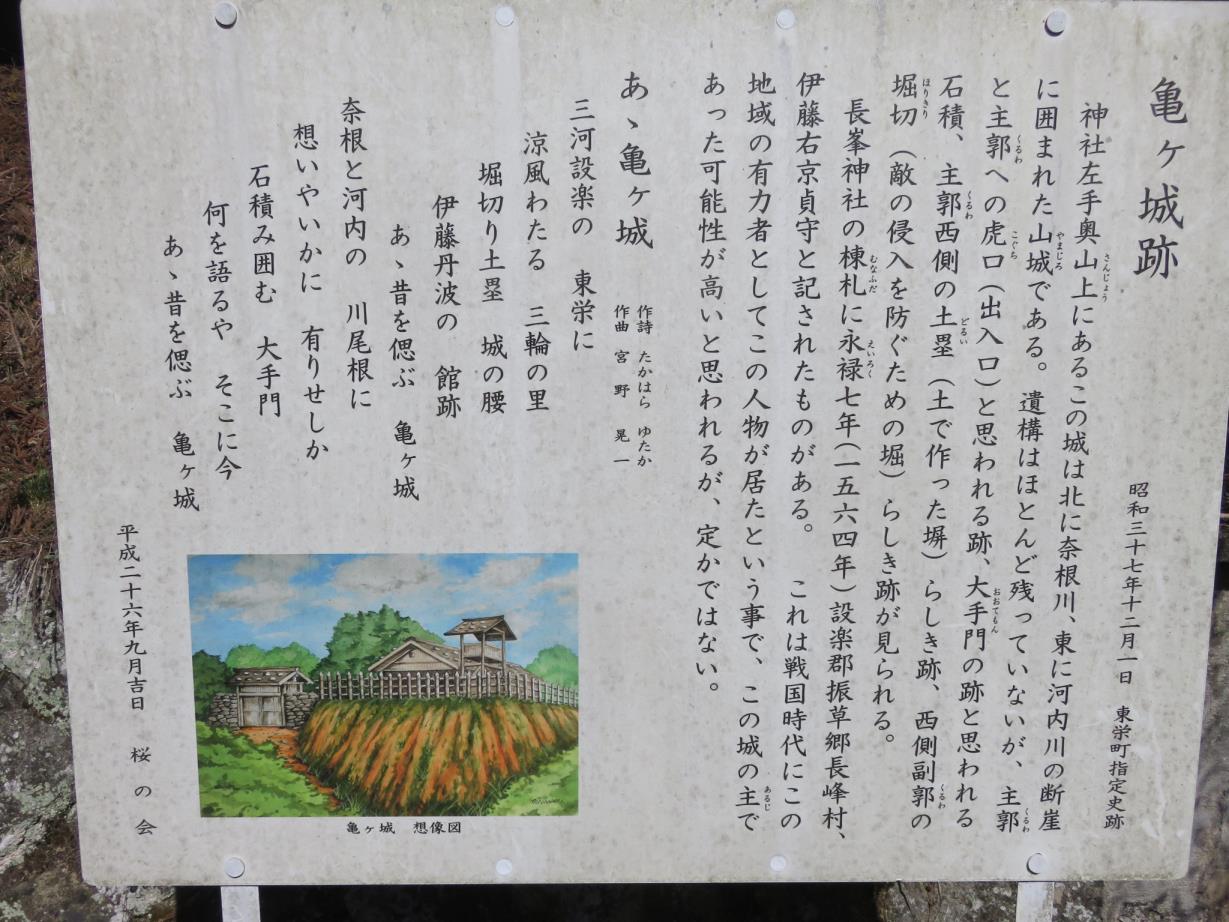 亀ヶ城跡
昭和三十七年十二月一日　東栄町指定史跡
神社左手奥山上にあるこの城は北に奈根川、東に河内川の断崖
に囲まれた山城である。遺構はほとんど残っていないが、主郭
と主郭への虎口（出入口）と思われる跡、大手門の跡と思われる
石積、主郭西側の土塁（土で作った塀）らしき跡、西側副郭の
堀切（敵の侵入を防ぐための堀）らしき跡が見られる。
長峯神社の棟札に永禄七年（一五六四年）設楽郡振草郷長峰村、
伊藤右京貞守と記されたものがある。　これは戦国時代にこの
地域の有力者としてこの人物が居たという事で、この城の主で
あった可能性が高いと思われるが、定かではない。
あゝ亀ヶ城
作詩　たかはら　ゆたか
作曲　宮　野　晃　一
三河設楽の　東栄に
涼風わたる　三輪の里
堀切り土塁　城の腰
伊藤丹波の　館跡
あゝ昔を偲ぶ　亀ヶ城
奈根と河内の　川尾根に
想いやいかに　有りせしか
石積み囲む　大手門
何を語るや　そこに今
あゝ昔を偲ぶ　亀ヶ城
亀ヶ城　想像図
平成二十六年九月吉日　桜　の　会